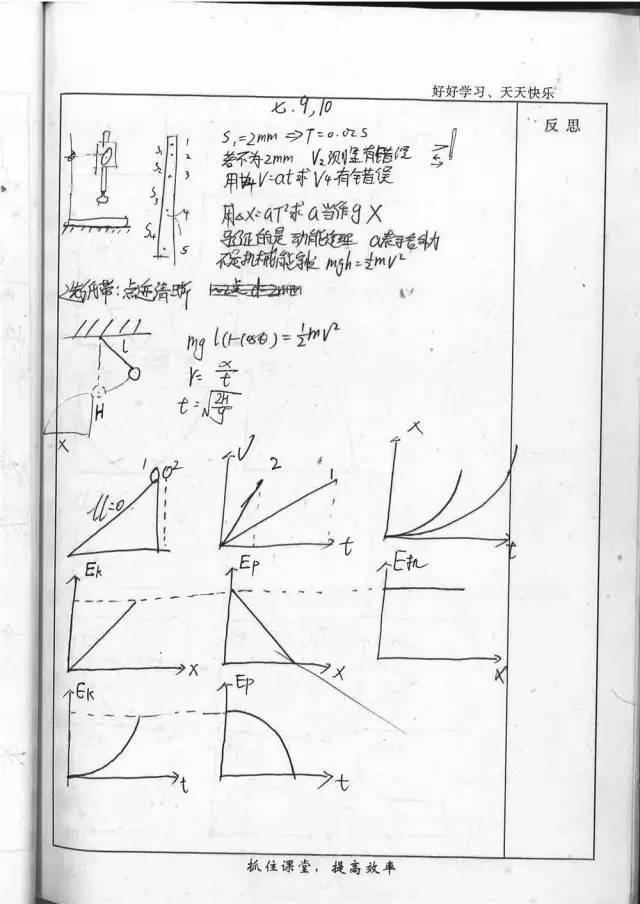 好好学习、天天快乐
七.9,10
反思
S₁=2mm ⇒T=0.02S
若不为2mm V₂测得有错误
用V=at求V₄有错误
用△X=aT²求a当作g X
验证的是 动能定理
不是机械能守恒 mgh=½mV²
选纸带:点迹清晰
S₁
S₂
S₃
S₄
1
2
3
4
5
mg l(1-cosθ)=½mV²
V=x/t
t=√(2H/g)
l
H
x
1 2
μ=0
V
2
1
t
x
t
Ek
x
Ep
x
E机
x
Ek
t
Ep
t
抓住课堂，提高效率